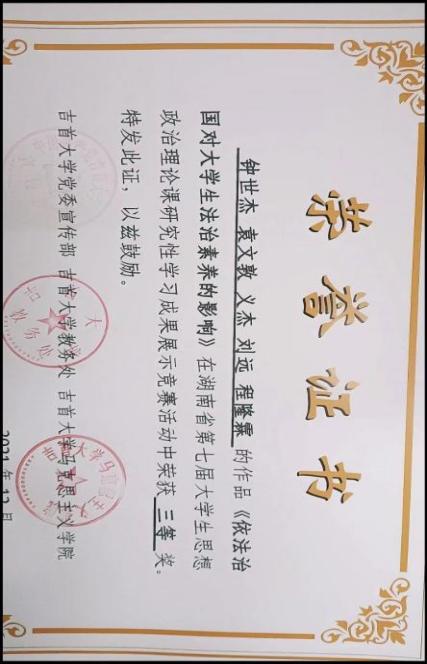 荣誉证书
钟世杰 袁文敦 义杰 刘远 程隆霖 的作品《依法治
国对大学生法治素养的影响》在湖南省第七届大学生思想
政治理论课研究性学习成果展示竞赛活动中荣获 三等 奖。
特发此证，以兹鼓励。
吉首大学党委宣传部 吉首大学教务处 吉首大学马克思主义学院
2021年12月